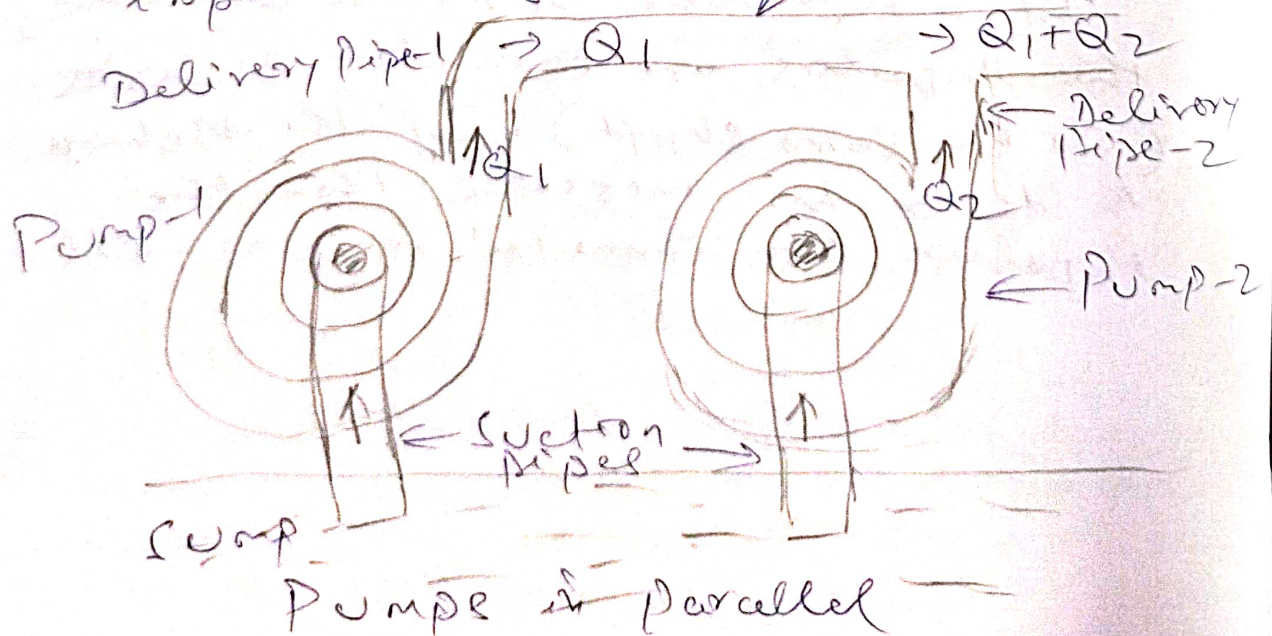 → Q1 → Q1+Q2
Delivery Pipe-1
← Delivery
Pipe-2
↑Q1
↑
Q2
Pump-1
← Pump-2
← Suction →
pipes
Sump
Pumps in parallel